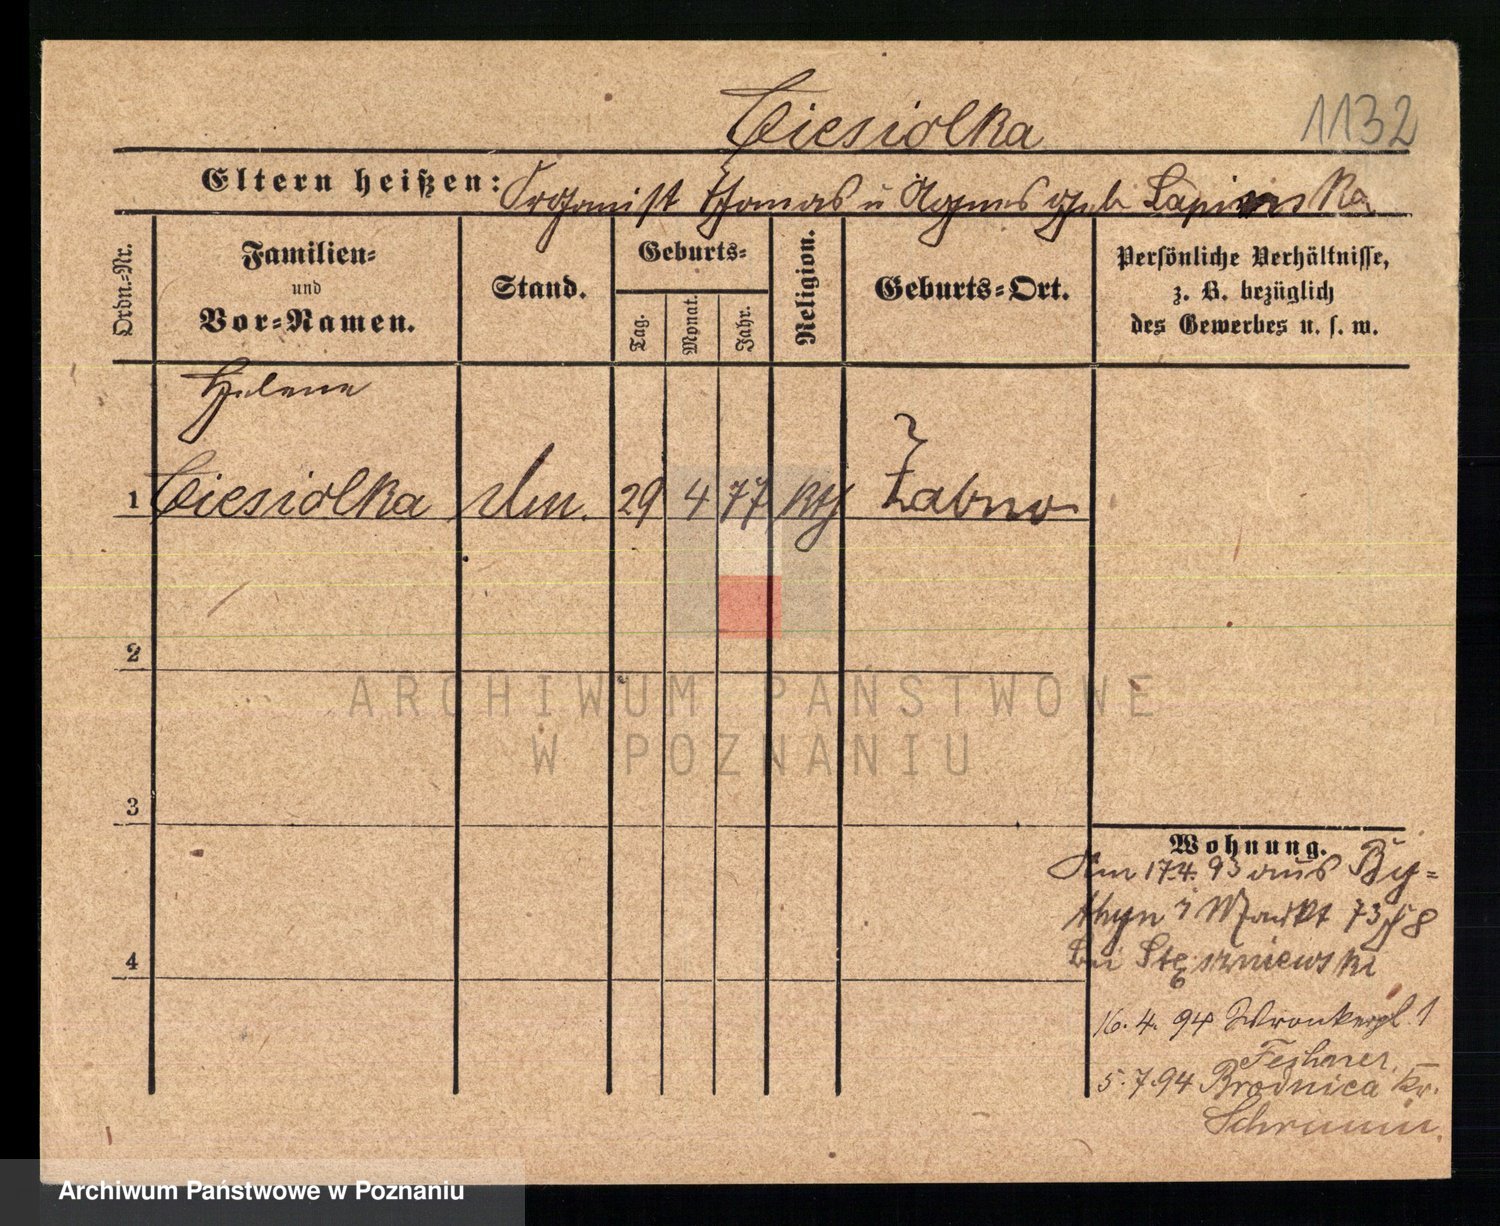 Ciesiolka
1132
Eltern heißen: Organist Thomas u Agnes geb Lapinska
Ordn.-Nr.
Familien-
und
Vor-Namen.
Stand.
Geburts-
Tag.
Monat.
Jahr.
Religion.
Geburts-Ort.
Persönliche Verhältnisse,
z. B. bezüglich
des Gewerbes u. s. w.
Helene
1 Ciesiolka 29 4 77 kth Żabno
2
ARCHIWUM PAŃSTWOWE
W POZNANIU
3
4
Wohnung.
Am 17.4.93 aus By-
thyn Markt 73 8
bei Stęszniewski
16. 4. 94 Wronkerpl. 1
Feshner
5.7.94 Brodnica Kr.
Schrimm.
Archiwum Państwowe w Poznaniu